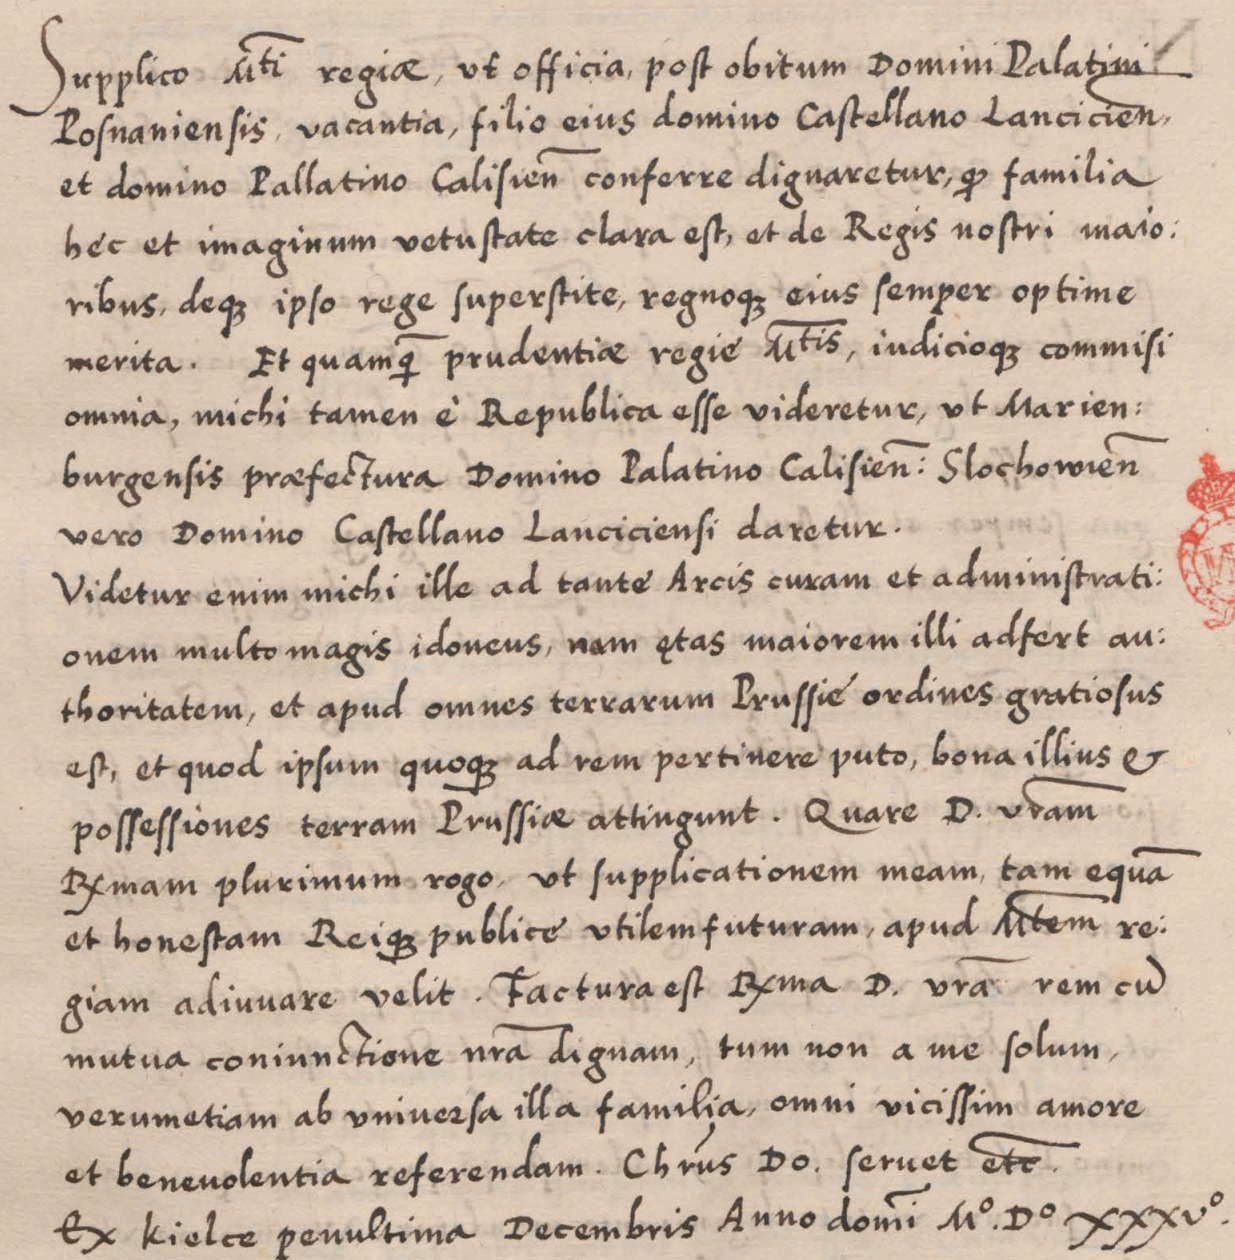 Supplico Mti regiæ, vt officia, post obitum Domini Palatini
Posnaniensis, vacantia, filio eius domino Castellano Lancicien,
et domino Pallatino Calisien conferre dignaretur, qp familia
hec et imaginum vetustate clara est, et de Regis nostri maio:
ribus, deqz ipso rege superstite, regnoqz eius semper optime
merita. Et quamq prudentiæ regie Mtis, iudicioqz commisi
omnia, michi tamen è Republica esse videretur, vt Marien:
burgensis præfectura Domino Palatino Calisien: Slochowien
vero Domino Castellano Lanciciensi daretur.
Videtur enim michi ille ad tante Arcis curam et administrati:
onem multo magis idoneus, nam ętas maiorem illi adfert au:
thoritatem, et apud omnes terrarum Prussie ordines gratiosus
est, et quod ipsum quoqz ad rem pertinere puto, bona illius &
possessiones terram Prussiæ attingunt. Quare D. vram
Rxmam plurimum rogo, vt supplicationem meam, tam equā
et honestam Reiqz publice vtilem futuram, apud Mtem re:
giam adiuuare velit. Factura est Rxma D. vrā rem cū
mutua coniunctione nrā dignam, tum non a me solum,
verumetiam ab vniuersa illa familia, omni vicissim amore
et beneuolentia referendam. Chrus Do. seruet etc.
Ex kielce penultima Decembris Anno domi Mº. Dº xxxvº.